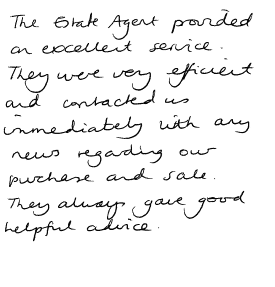 The Estate Agent provided
an excellent service.
They were very efficient
and contacted us
immediately with any
news regarding our
purchase and sale.
They always gave good
helpful advice.